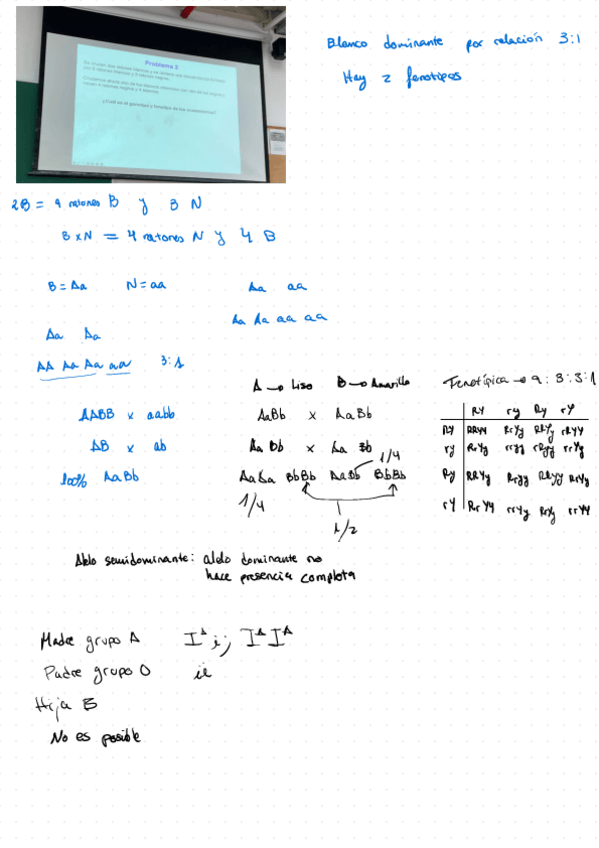 Problema 2
¿Cuál es el genotipo y fenotipo de los
Blanco dominante por relación 3:1
Hay 2 fenotipos
2B = 9 ratones B y 3 N
B x N = 4 ratones N y 4 B
B = Aa N = aa Aa aa
Aa Aa aa aa
Aa Aa
AA Aa Aa aa 3:1
A → Liso B → Amarillo
Fenotípica → 9:3:3:1
AABB x aabb
AaBb x AaBb
AB x ab
Aa Bb x Aa Bb
1/4
100% AaBb
AaAa BbBb AaBb BbBb
1/4
1/2
RY ry Ry rY
RY RRYY RrYy RRYy rRYY
ry RrYy rryy rRyy rrYy
Ry RRYy Rryy RRyy RrYy
rY RrYY rrYy RrYy rrYY
Alelo semidominante: alelo dominante no
hace presencia completa
Madre grupo A Iᴬi; IᴬIᴬ
Padre grupo O ii
Hija B
No es posible